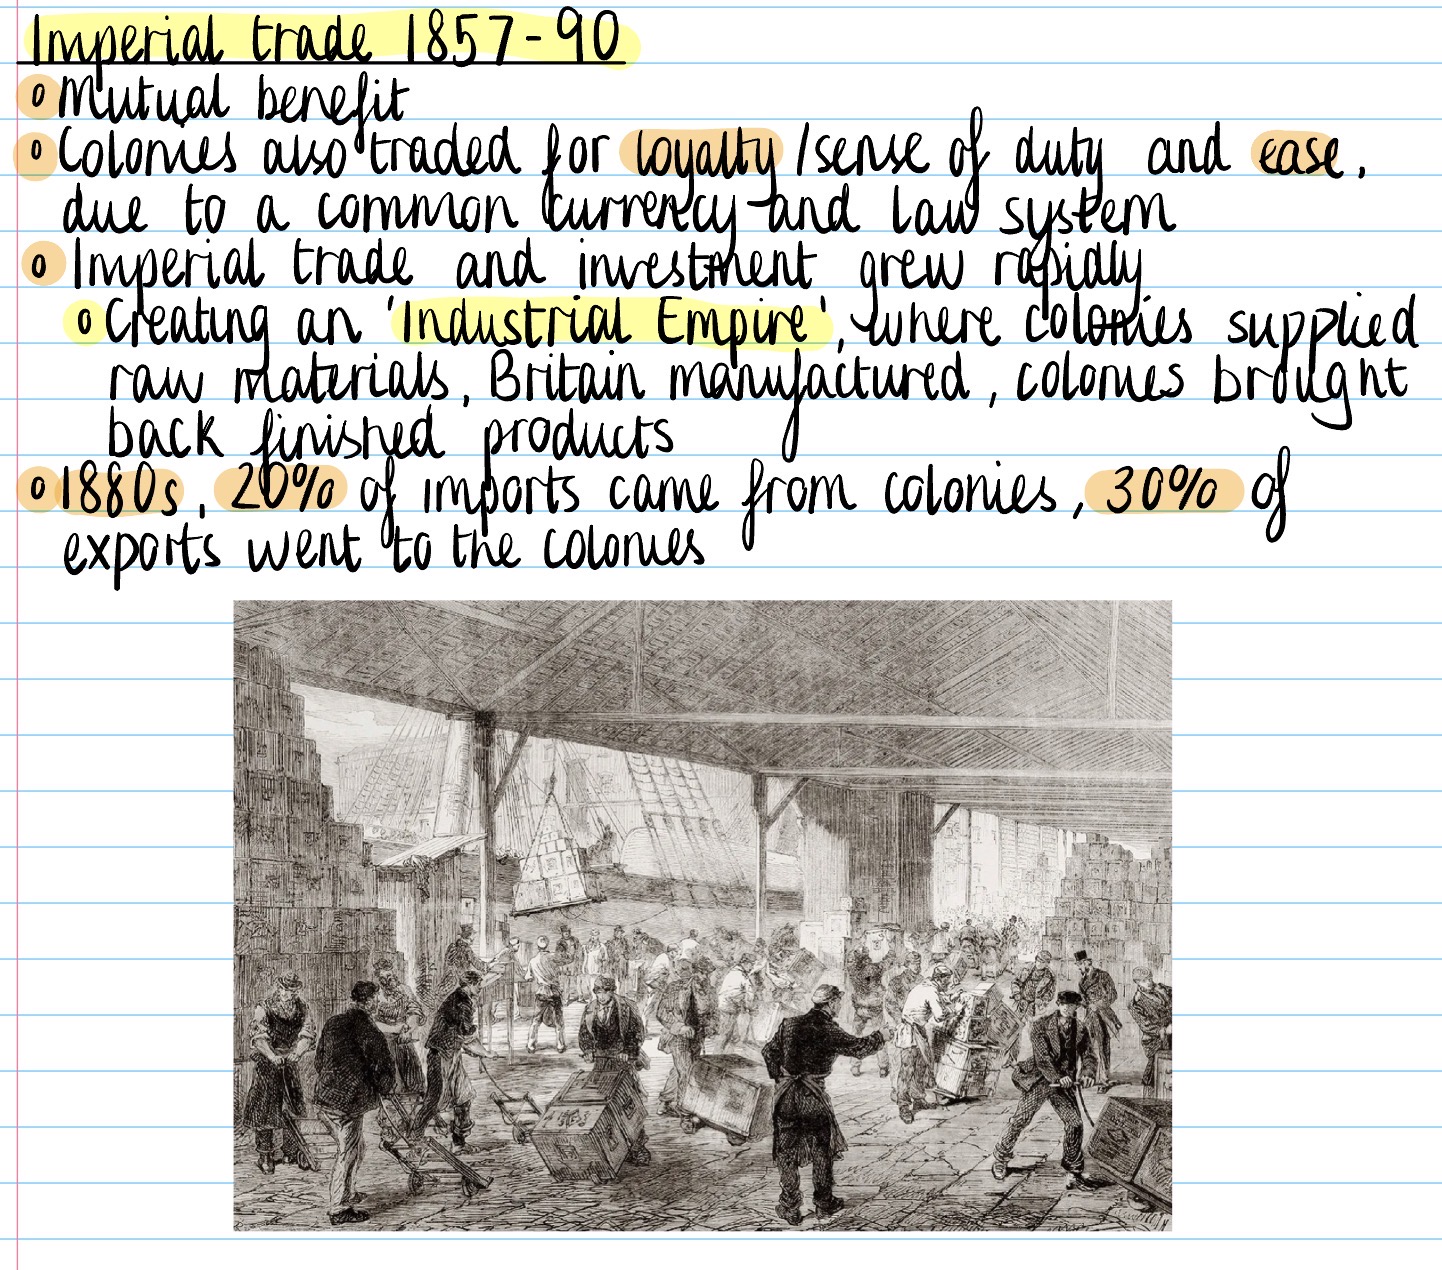 Imperial trade 1857-90
o Mutual benefit
o Colonies also traded for loyalty /sense of duty and ease,
due to a common currency and law system
o Imperial trade and investment grew rapidly
o Creating an 'Industrial Empire', where colonies supplied
raw materials, Britain manufactured, colonies brought
back finished products
o 1880s, 20% of imports came from colonies, 30% of
exports went to the colonies